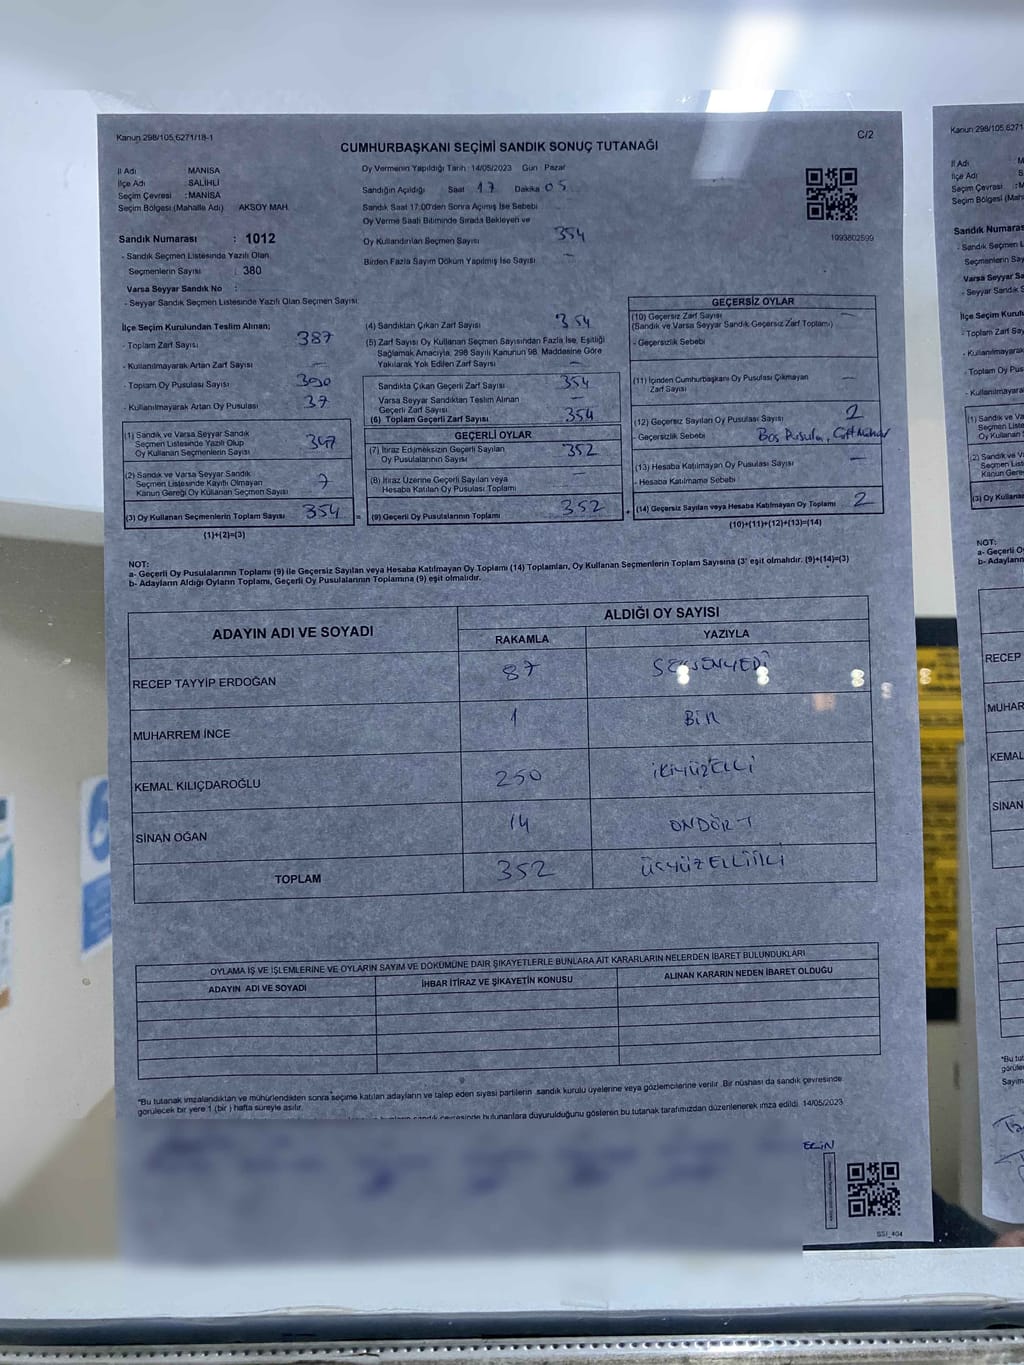 Kanun 298/105,6271/18-1
C/2
CUMHURBAŞKANI SEÇİMİ SANDIK SONUÇ TUTANAĞI
İl Adı MANİSA
İlçe Adı : SALİHLİ
Seçim Çevresi : MANİSA
Seçim Bölgesi (Mahalle Adı) AKSOY MAH.
Sandık Numarası : 1012
- Sandık Seçmen Listesinde Yazılı Olan
Seçmenlerin Sayısı : 380
Varsa Seyyar Sandık No :
- Seyyar Sandık Seçmen Listesinde Yazılı Olan Seçmen Sayısı
Oy Vermenin Yapıldığı Tarih 14/05/2023 Gün : Pazar
Sandığın Açıldığı Saat 17 Dakika 05
Sandık Saat 17:00'den Sonra Açılmış İse Sebebi
Oy Verme Saati Bitiminde Sırada Bekleyen ve
Oy Kullandırılan Seçmen Sayısı 354
Birden Fazla Sayım Döküm Yapılmış İse Sayısı —
1093802599
İlçe Seçim Kurulundan Teslim Alınan;
- Toplam Zarf Sayısı 387
- Kullanılmayarak Artan Zarf Sayısı —
- Toplam Oy Pusulası Sayısı 390
- Kullanılmayarak Artan Oy Pusulası 37
(1) Sandık ve Varsa Seyyar Sandık
Seçmen Listesinde Yazılı Olup
Oy Kullanan Seçmenlerin Sayısı 347
(2) Sandık ve Varsa Seyyar Sandık
Seçmen Listesinde Kayıtlı Olmayan
Kanun Gereği Oy Kullanan Seçmen Sayısı 7
(3) Oy Kullanan Seçmenlerin Toplam Sayısı 354
(1)+(2)=(3)
(4) Sandıktan Çıkan Zarf Sayısı 354
(5) Zarf Sayısı Oy Kullanan Seçmen Sayısından Fazla İse, Eşitliği
Sağlamak Amacıyla, 298 Sayılı Kanunun 98. Maddesine Göre
Yakılarak Yok Edilen Zarf Sayısı —
Sandıkta Çıkan Geçerli Zarf Sayısı 354
Varsa Seyyar Sandıktan Teslim Alınan
Geçerli Zarf Sayısı —
(6) Toplam Geçerli Zarf Sayısı 354
GEÇERLİ OYLAR
(7) İtiraz Edilmeksizin Geçerli Sayılan
Oy Pusulalarının Sayısı 352
(8) İtiraz Üzerine Geçerli Sayılan veya
Hesaba Katılan Oy Pusulası Toplamı —
= (9) Geçerli Oy Pusulalarının Toplamı 352
GEÇERSİZ OYLAR
(10) Geçersiz Zarf Sayısı —
(Sandık ve Varsa Seyyar Sandık Geçersiz Zarf Toplamı)
- Geçersizlik Sebebi
(11) İçinden Cumhurbaşkanı Oy Pusulası Çıkmayan
Zarf Sayısı —
(12) Geçersiz Sayılan Oy Pusulası Sayısı 2
- Geçersizlik Sebebi Boş Pusula,
(13) Hesaba Katılmayan Oy Pusulası Sayısı —
- Hesaba Katılmama Sebebi
+ (14) Geçersiz Sayılan veya Hesaba Katılmayan Oy Toplamı 2
(10)+(11)+(12)+(13)=(14)
NOT:
a- Geçerli Oy Pusulalarının Toplamı (9) ile Geçersiz Sayılan veya Hesaba Katılmayan Oy Toplamı (14) Toplamları, Oy Kullanan Seçmenlerin Toplam Sayısına (3' eşit olmalıdır. (9)+(14)=(3)
b- Adayların Aldığı Oyların Toplamı, Geçerli Oy Pusulalarının Toplamına (9) eşit olmalıdır.
ADAYIN ADI VE SOYADI ALDIĞI OY SAYISI
RAKAMLA YAZIYLA
RECEP TAYYİP ERDOĞAN 87 SEKSENYEDİ
MUHARREM İNCE 1 BİR
KEMAL KILIÇDAROĞLU 250 İKİYÜZELLİ
SİNAN OĞAN 14 ONDÖRT
TOPLAM 352 ÜÇYÜZELLİİKİ
OYLAMA İŞ VE İŞLEMLERİNE VE OYLARIN SAYIM VE DÖKÜMÜNE DAİR ŞİKAYETLERLE BUNLARA AİT KARARLARIN NELERDEN İBARET BULUNDUKLARI
ADAYIN ADI VE SOYADI İHBAR İTİRAZ VE ŞİKAYETİN KONUSU ALINAN KARARIN NEDEN İBARET OLDUĞU
*Bu tutanak imzalandıktan ve mühürlendikten sonra seçime katılan adayların ve talep eden siyasi partilerin sandık kurulu üyelerine veya gözlemcilerine verilir. Bir nüshası da sandık çevresinde
görülecek bir yere 1 (bir ) hafta süreyle asılır.
sandık çevresinde bulunanlara duyurulduğunu gösteren bu tutanak tarafımızdan düzenlenerek imza edildi. 14/05/2023
SSI_404
Kanun 298/105,6271
İl Adı M
İlçe Adı : S
Seçim Çevresi : M
Seçim Bölgesi (Mah
Sandık Numaras
- Sandık Seçmen L
Seçmenlerin Say
Varsa Seyyar San
- Seyyar Sandık S
İlçe Seçim Kurulu
- Toplam Zarf Say
- Kullanılmayarak
- Toplam Oy Pus
- Kullanılmayarak
(1) Sandık ve Va
Seçmen Liste
Oy Kullanan
(2) Sandık ve V
Seçmen List
Kanun Gere
(3) Oy Kullanan
NOT:
a- Geçerli O
b- Adayların
RECEP
MUHAR
KEMAL
SİNAN
*Bu tut
görüle
Sayım